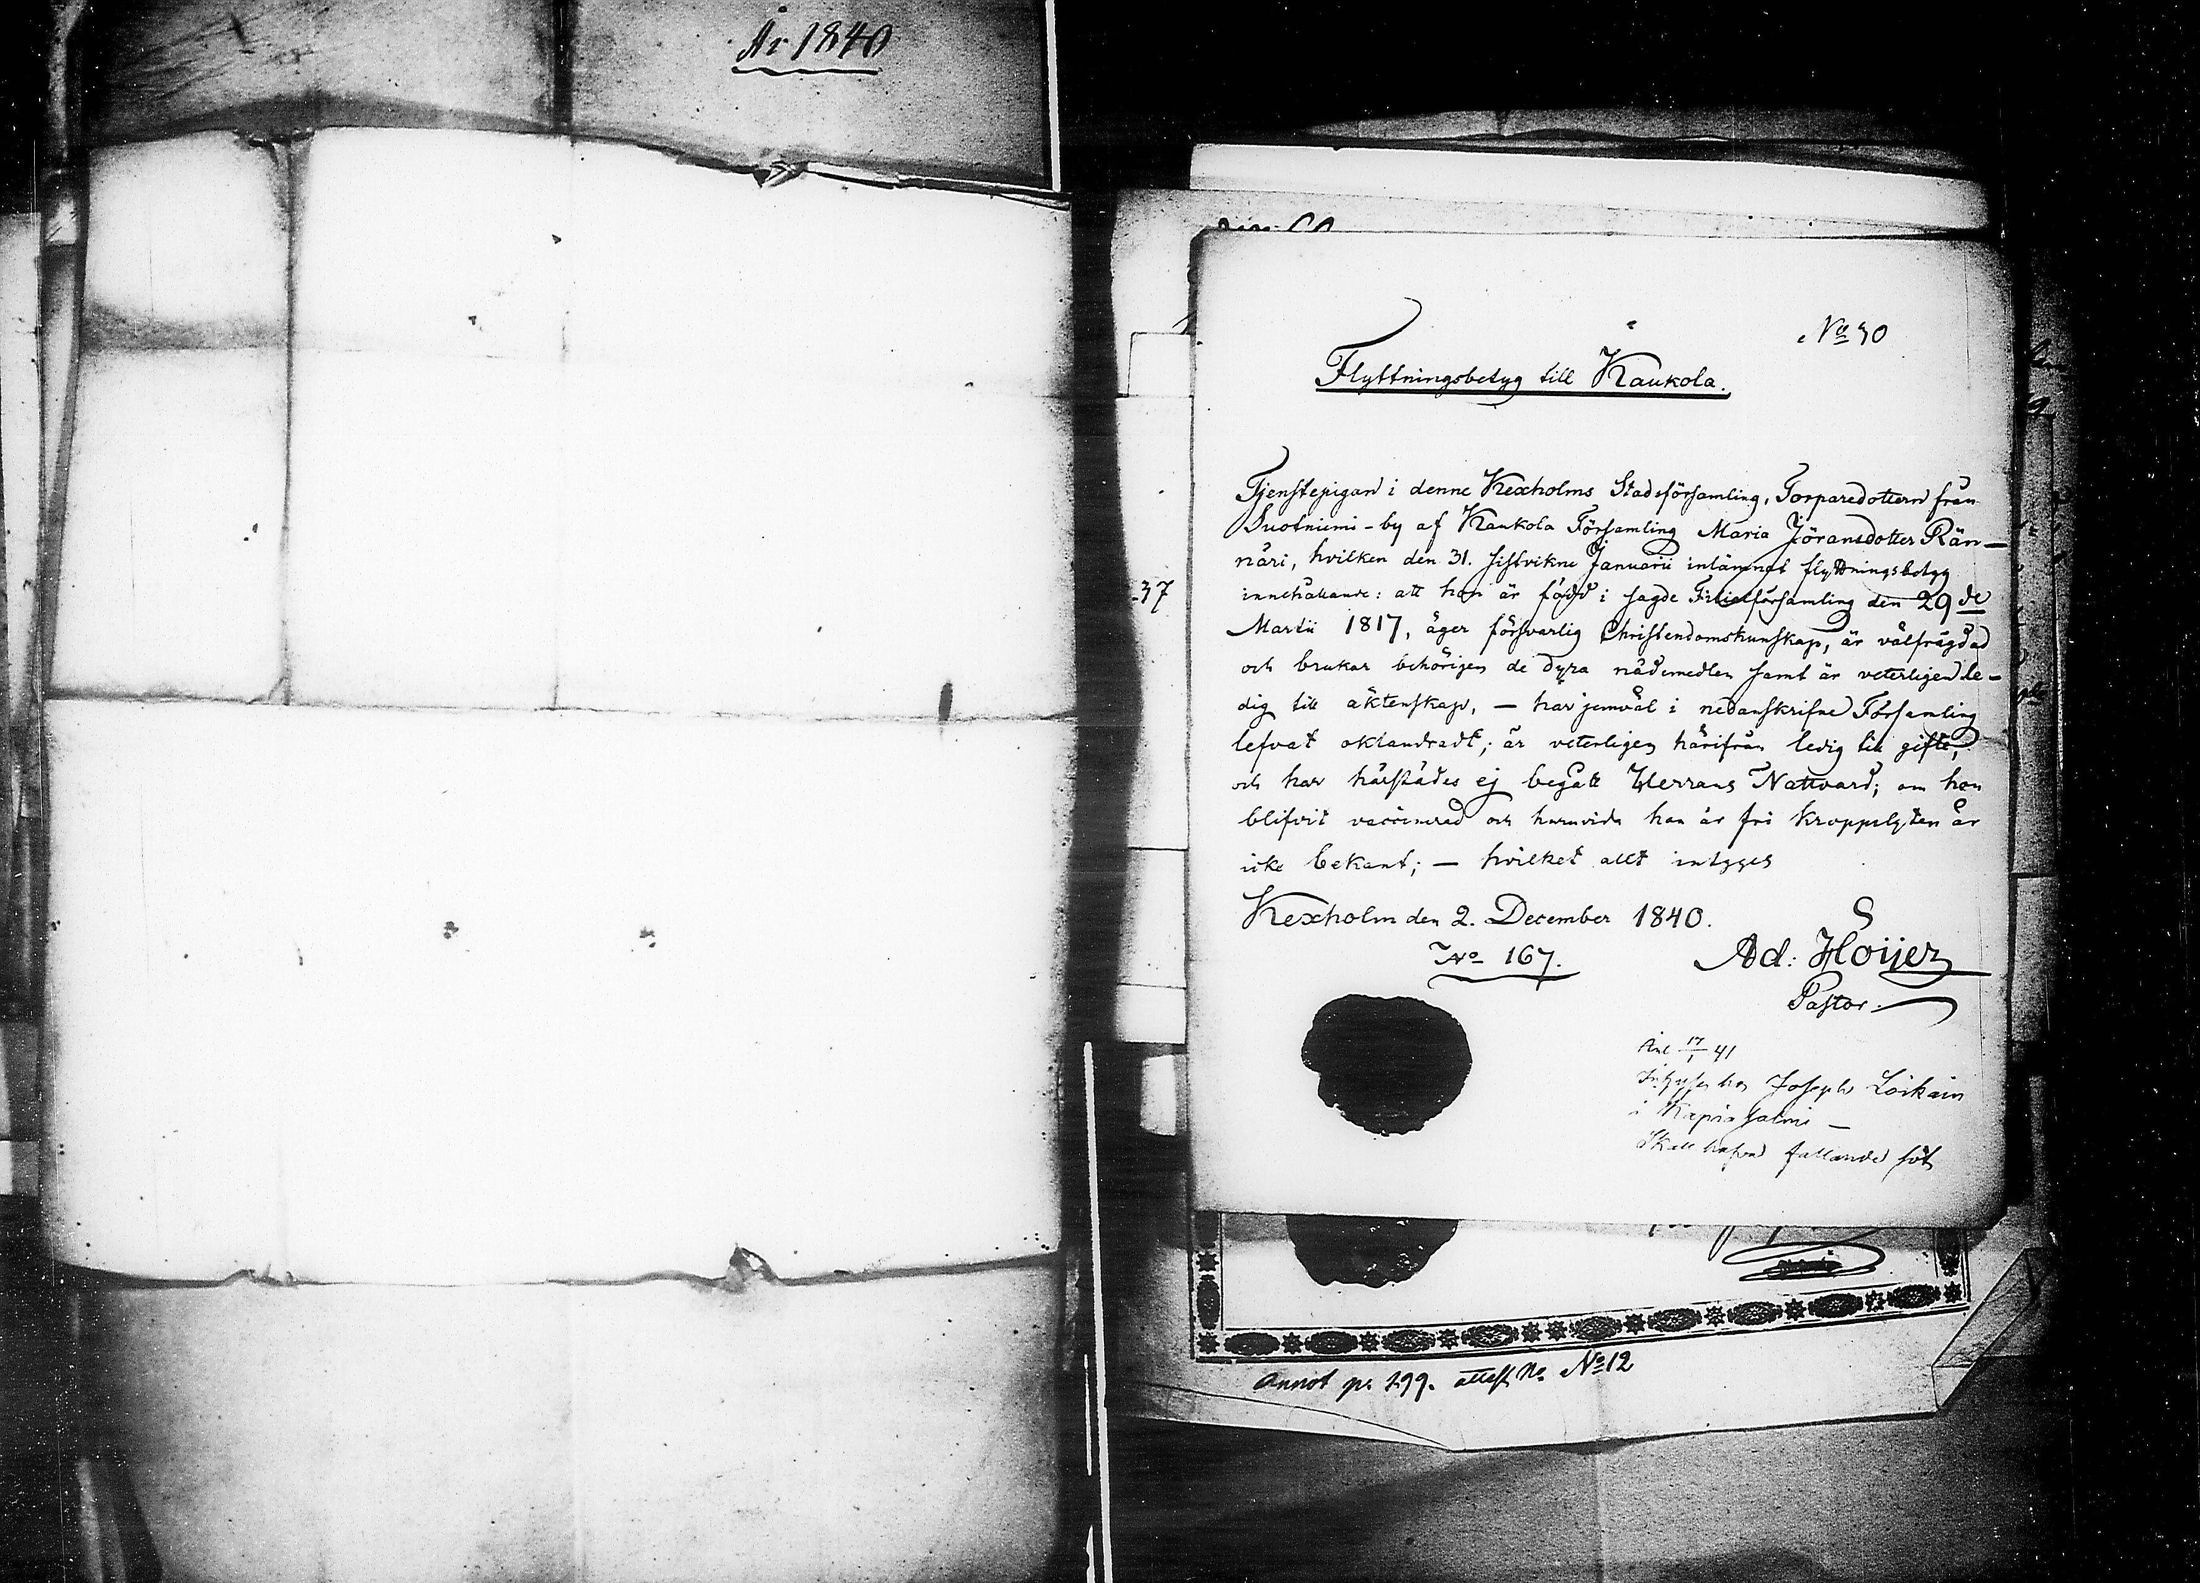 År 1840
No 40
Flyttningsbetyg till Kaukola.
Tjenstepigan i denne Kexholms Stadsförsamling, Torparedottern från
Suotniemi-by af Kaukola Församling Maria Jöransdotter Rän-
näri, hvilken den 31. sistvikne Januarii inlämnat flyttningsbetyg
innehållande: att hon är född i sagde Filialförsamling den 29de
Martii 1817, äger försvarlig Christendomskunskap, är välfrägdad
och brukar behörigen de dyra nådemedlen samt är veterligen le-
dig till äktenskap, — har jemväl i nedanskrifne Församling
lefvat oklandradt; är veterligen härifrån ledig till gifte,
och har härstädes ej begått Herrans Nattvard; om hon
blifvit vaccinerad och huruvida hon är fri kroppslyten är
icke bekant; — hvilket allt intygas
Kexholm den 2. December 1840.
No 167.
Ad: Höijer
Pastor.
Anl 17/1 41
hos Joseph Loikain
i Kapiasalmi —
fallande sot
37
Annot p. 199. attest No No 12